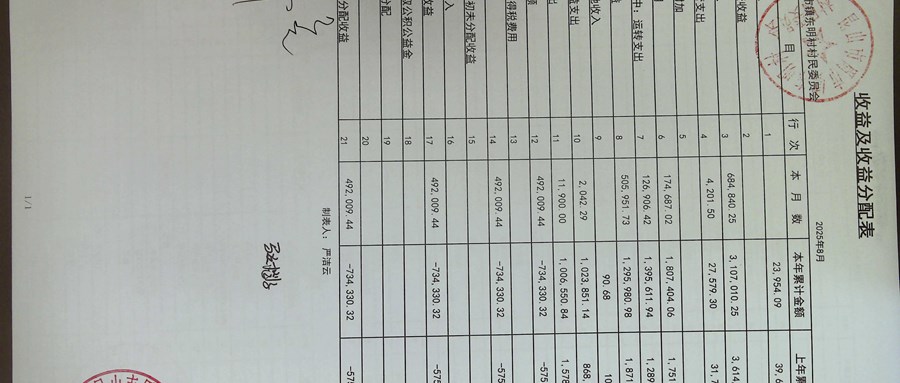 收益及收益分配表
2025年8月
市镇东明村村民委员会
目 行次 本月数 本年累计金额 上年累
1 23,954.09 39,6
收益 2
3 684,840.25 3,107,010.25 3,614
支出 4 4,201.50 27,579.30 31,7
附加 5
6 174,687.02 1,807,404.06 1,751
中：运转支出 7 126,906.42 1,395,611.94 1,289
益 8 505,951.73 1,295,980.98 1,871
他收入 9 90.68 10
益支出 10 2,042.29 1,023,851.14 868,
出 11 11,900.00 1,006,550.84 1,578
额 12 492,009.44 -734,330.32 -575
得税费用 13
14 492,009.44 -734,330.32 -575
初未分配收益 15
入 16
收益 17 492,009.44 -734,330.32 -575
取公积公益金 18
分配 19
20
分配收益 21 492,009.44 -734,330.32 -575
制表人：严洁云
1/1